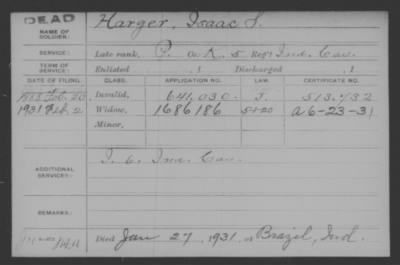 DEAD
NAME OF SOLDIER: Harger, Isaac S.
SERVICE: Late rank, P. Co. K, 5 Reg't Ind. Cav.
TERM OF SERVICE: Enlisted , 1 Discharged , 1
DATE OF FILING. CLASS. APPLICATION NO. LAW. CERTIFICATE NO.
1888 Feb. 20. Invalid, 641,030. J. 513,732
1931 Feb. 2 Widow, 1686186 5-1-20 A 6-23-31
Minor,
ADDITIONAL SERVICES: I. 6. Ind. Cav.
REMARKS:
Died Jan 27, 1931, at Brazil, Ind.